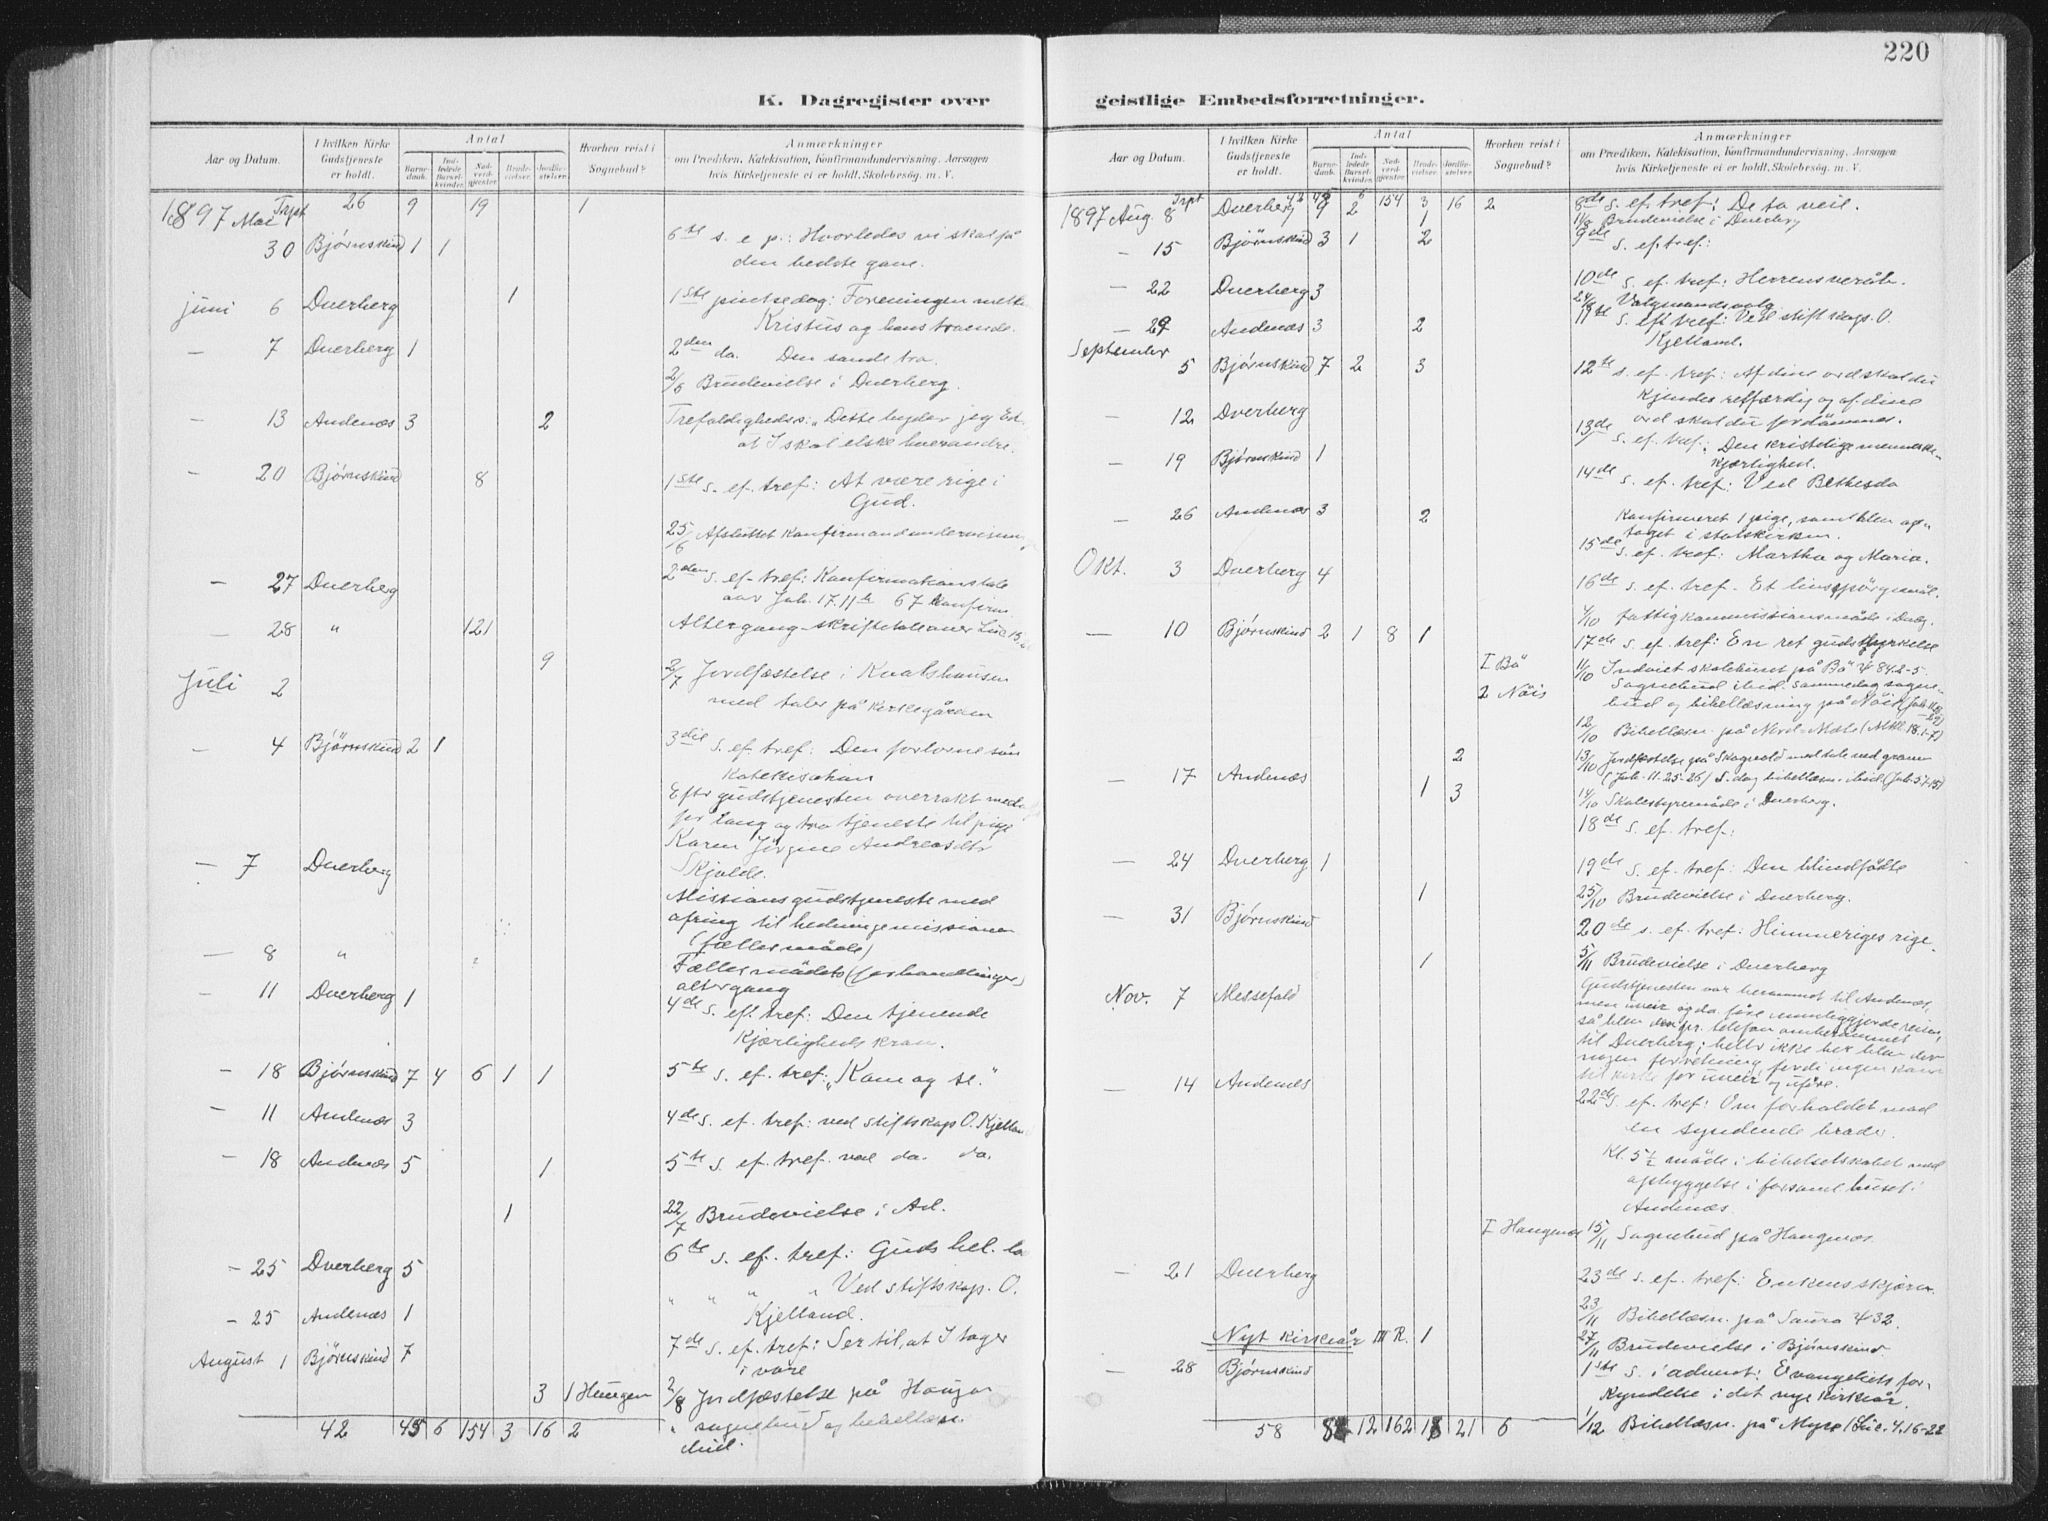 K. Dagregister over
Aar og Datum. I hvilken Kirke Gudstjeneste er holdt. Antal Barnedaab. Indledede Barselkvinder. Nadverdgjester Brudevielser. Jordfæstelser. Hvorhen reist i Sognebud? Anmærkninger om Prædiken, Katekisation, Konfirmandundervisning, Aarsagen hvis Kirketjeneste ei er holdt, Skolebesøg, m. V.
1897 Mai Trpt 26 9 19 1
30 Bjørnskind 1 1 6te s. e. p.: Hvorledes vi skal få
den bedste gave.
juni 6 Dverberg 1 1ste pintsedag: Foreningen mell.
Kristus og hans troende.
– 7 Dverberg 1 2den do. Den sande tro.
2/6 Brudevielse i Dverberg.
– 13 Andenæs 3 2 Trefoldighedss: "Dette byder jeg Eder
at I skal elske hverandre.
– 20 Bjørnskind 8 1ste s. ef. tref: At være rige i
Gud.
25/6 Afsluttet konfirmandundervisning
– 27 Dverberg 2den s. ef. tref: Konfirmationstale
over Joh. 17.11 67 konfirm.
– 28 " 121 Altergang – skriftetale over Luc 15
9 2/7 Jordfæstelse i
Juli 2 med taler på kirkegården
– 4 Bjørnskind 2 1 3die s. ef. tref: Den fortorne søn
katekisation
Efter gudstjenesten overrakt medalje
for lang og tro tjeneste til pige
Karen Jörgine Andreasdtr
– 7 Dverberg Skjolde.
Missionsgudstjeneste med
ofring til hedningemissionen
(fællesmøde)
– 8 " Fællesmødets (forhandlinger)
altergang
– 11 Dverberg 1 4de s. ef. tref: Den tjenende
Kjærligheds krav.
– 18 Bjørnskind 7 4 6 1 1 5te s. ef. tref: "Kom og se."
– 11 Andenæs 3 4de s. ef. tref: ved stiftskap. O. Kjelland
– 18 Andenæs 5 1 5te s. ef. tref. ved do. do.
1 22/7 Brudevielse i Ad.
– 25 Dverberg 5 6te s. ef. tref: Guds hel. lov
" " " " Ved stiftskap. O.
– 25 Andenæs 1 Kjelland.
August 1 Bjørnskind 7 7de s. ef. tref: Ser til, at I tager
i vare
3 1 Haugen 2/8 Jordfæstelse på Haugen
42 45 6 154 3 16 2 " sognebud og bibellæsn.
ibid.
220
geistlige Embedsforretninger.
Aar og Datum. I hvilken Kirke Gudstjeneste er holdt. Antal Barnedaab. Indledede Barselkvinder. Nadverdgjester Brudevielser. Jordfæstelser. Hvorhen reist i Sognebud? Anmærkninger om Prædiken, Katekisation, Konfirmandundervisning, Aarsagen hvis Kirketjeneste ei er holdt, Skolebesøg, m. V.
1897 Aug. Trpt 8 Dverberg 42 45 9 6 2 154 3 16 2 8de s. ef. tref: De to veie.
1 11/8 Brudevielse i Dverberg
– 15 Bjørnskind 3 1 2 9de s. ef. tref:
– 22 Dverberg 3 10de s. ef. tref: Herrens veråb.
24/8 Valgmandsvalg
– 29 Andenæs 3 2 11te s. eft tref: Ved stiftskap. O.
Kjelland.
September 5 Bjørnskind 7 2 3 12te s. ef. tref: Af dine ord skal du
kjendes retfærdig og af dine
– 12 Dverberg ord skal du fordømmes.
13de s. ef. tref: Den kristelige menneske-
– 19 Bjørnskind 1 kjærlighed.
14de s. ef. tref: Ved Bethesda
– 26 Andenæs 3 2 Konfirmeret 1 pige, som blev op-
taget i statskirken.
15de s. ef. tref: Martha og Maria.
Okt. 3 Dverberg 4 16de s. ef. tref. Et livsspörgsmål.
4/10 fattigkommissionsmöde i Dverg.
– 10 Bjørnskind 2 1 8 1 17de s. ef. tref: En ret gudsdyrkelse
I Bö 11/10 Indviet skolehuset på Bö ψ 84.2-5.
2 Nöis Sognebud ibid. Sammedag sogne-
bud og bibellæsning på Nöis
12/10 Bibellæsn. på Nord-Mæle
2 13/10 Jordfæstelse på Skogvold med tale ved graven
– 17 Andenæs (Joh. 11.25-26) S. dag bibellæsn. ibid
1 3 14/10 Skolestyremöde i Dverberg.
18de s. ef. tref:
– 24 Dverberg 1 19de s. ef. tref: Den blindfødte
1 25/10 Brudevielse i Dverberg.
– 31 Bjørnskind 20de s. ef. tref: Himmeriges rige.
1 5/11 Brudevielse i Dverberg
Nov. 7 Messefald Gudstjenesten var berammet til Andenæs,
men uveir og da före umuliggjorde reisen,
så blev den pr. telefon omberammet
til Dverberg; heller ikke her blev der
nogen forretning, fordi ingen kom
– 14 Andenæs til kirke for uveir og uføre.
22de s. ef. tref: Om forholdet mod
en syndende broder.
Kl. 5½ möde i bibelselskabet med
opbyggelse i forsaml.huset i
Andenæs.
I Haugenæs 15/11 Sognebud på Haugnæs.
– 21 Dverberg 23de s. ef. tref: Enkens skjærv.
23/11 Bibellæsn. på Saura ψ 32.
Nyt kirkeår III R. 1 27/11 Brudevielse i Bjørnskind
– 28 Bjørnskind 1ste s. i advent: Evangeliets for-
kyndelse i det nye kirkeår.
58 84 12 162 18 21 6 1/12 Bibellæsn. på Myre (Luc. 4.16-22